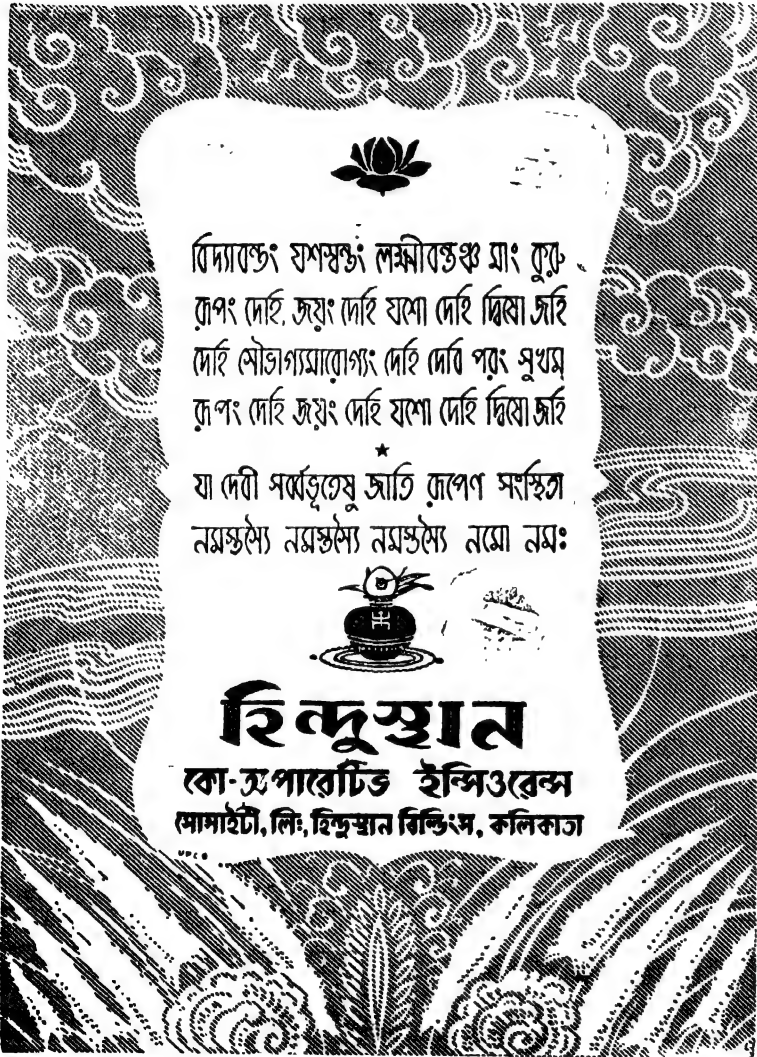 বিদ্যাবন্তং যশস্বন্তং লক্ষ্মীবন্তঞ্চ মাং কুরু
রূপং দেহি, জয়ং দেহি যশো দেহি দ্বিষো জহি
দেহি সৌভাগ্যমারোগ্যং দেহি দেবি পরং সুখম্
রূপং দেহি জয়ং দেহি যশো দেহি দ্বিষো জহি
★
যা দেবী সর্ব্বভূতেষু জাতি রূপেণ সংস্থিতা
নমস্তস্যৈ নমস্তস্যৈ নমস্তস্যৈ নমো নমঃ
হিন্দুস্থান
কো-অপারেটিভ ইন্সিওরেন্স
সোসাইটী, লিঃ, হিন্দুস্থান বিল্ডিংস, কলিকাতা